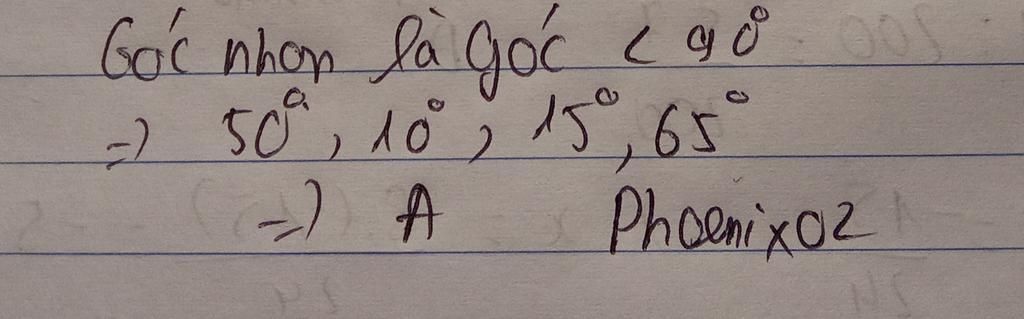 Góc nhọn là góc < 90°
=) 50°, 10°, 15°, 65°
=) A Phoenix02